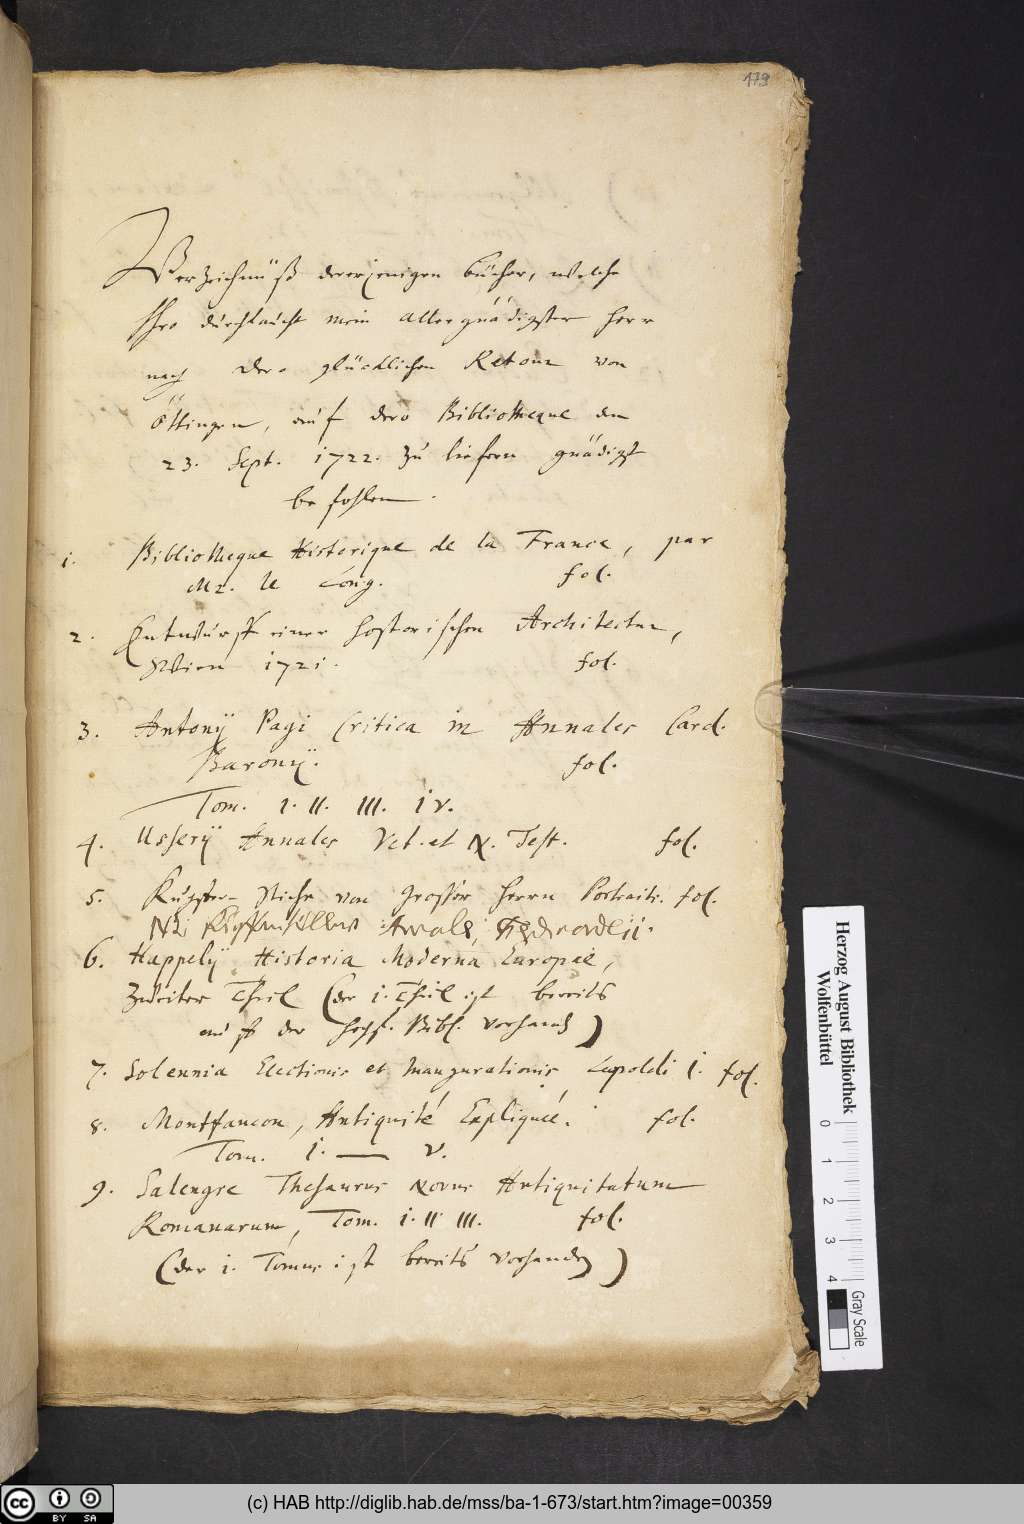 179
Verzeichnüß dererjenigen Bücher, welche
Ihro durchlaucht mein allergnädigster Herr
nach dero glücklichen Retour von
Öttingen, auf dero Bibliotheque den
23. Sept. 1722. zu liefern gnädigst
befohlen.
1. Bibliotheque Historique de la France, par
Mr. le Long. fol.
2. Entwurff einer historischen Architectur,
Wien 1721. fol.
3. Antonij Pagi Critica in Annales Card.
Baronij. fol.
Tom. I. II. III. IV.
4. Usserij Annales Vet. et N. Test. fol.
5. Kupfer-Stiche von grosser Herrn Portraits. fol.
6. Happelij Historia Moderna Europae,
Zweiter Theil (der 1. Theil ist bereits
auff der Hochf. Bibl. vorhanden)
7. Solennia Electionis et Inaugurationis Leopoldi I. fol.
8. Montfaucon, Antiquité Expliquée. fol.
Tom. I. — V.
9. Salengre Thesaurus Novus Antiquitatum
Romanarum, Tom. I. II. III. fol.
(der 1. Tomus ist bereits vorhanden)
Herzog August Bibliothek
Wolfenbüttel
0 1 2 3 4
Gray Scale
cc BY SA
(c) HAB http://diglib.hab.de/mss/ba-1-673/start.htm?image=00359